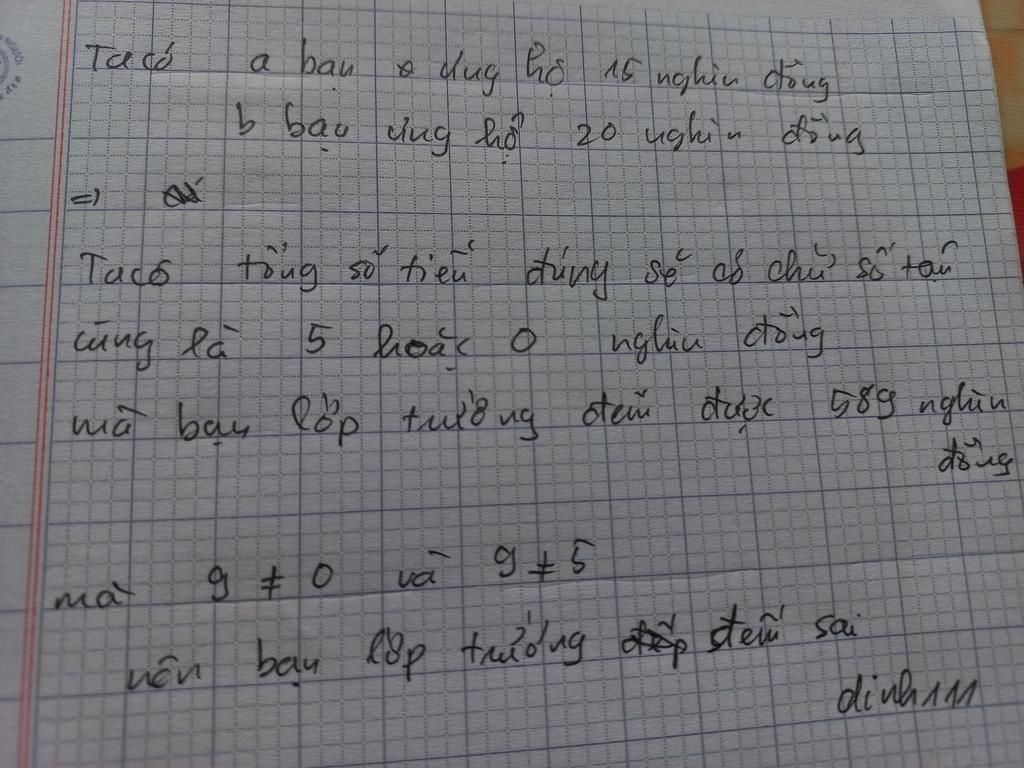 Ta có a bạn ủng hộ 15 nghìn đồng
b bạn ủng hộ 20 nghìn đồng
=>
Ta có tổng số tiền đúng sẽ có chữ số tận
cùng là 5 hoặc 0 nghìn đồng
mà bạn lớp trưởng đếm được 589 nghìn
đồng
mà 9 ≠ 0 và 9 ≠ 5
nên bạn lớp trưởng đếm sai
dinh111